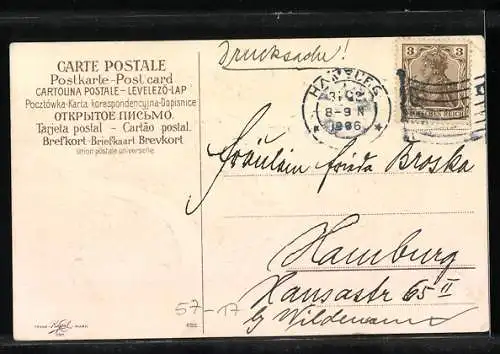 CARTE POSTALE
Postkarte-Post card
CARTOLINA POSTALE-LEVELEZŐ-LAP
Pocztówka-Karta korespondencyjna-Dopisnice
ОТКРЫТОЕ ПИСЬМО.
Tarjeta postal - Cartão postal.
Brefkort-Briefkaart Brevkort
Union postale universelle
Drucksache!
HAMBURG
8-9 N
1906
3 3
DEUTSCHES REICH
Fräulein Frieda Broska
Hamburg
Hansastr 65 II
b/ Wildemann
57-17